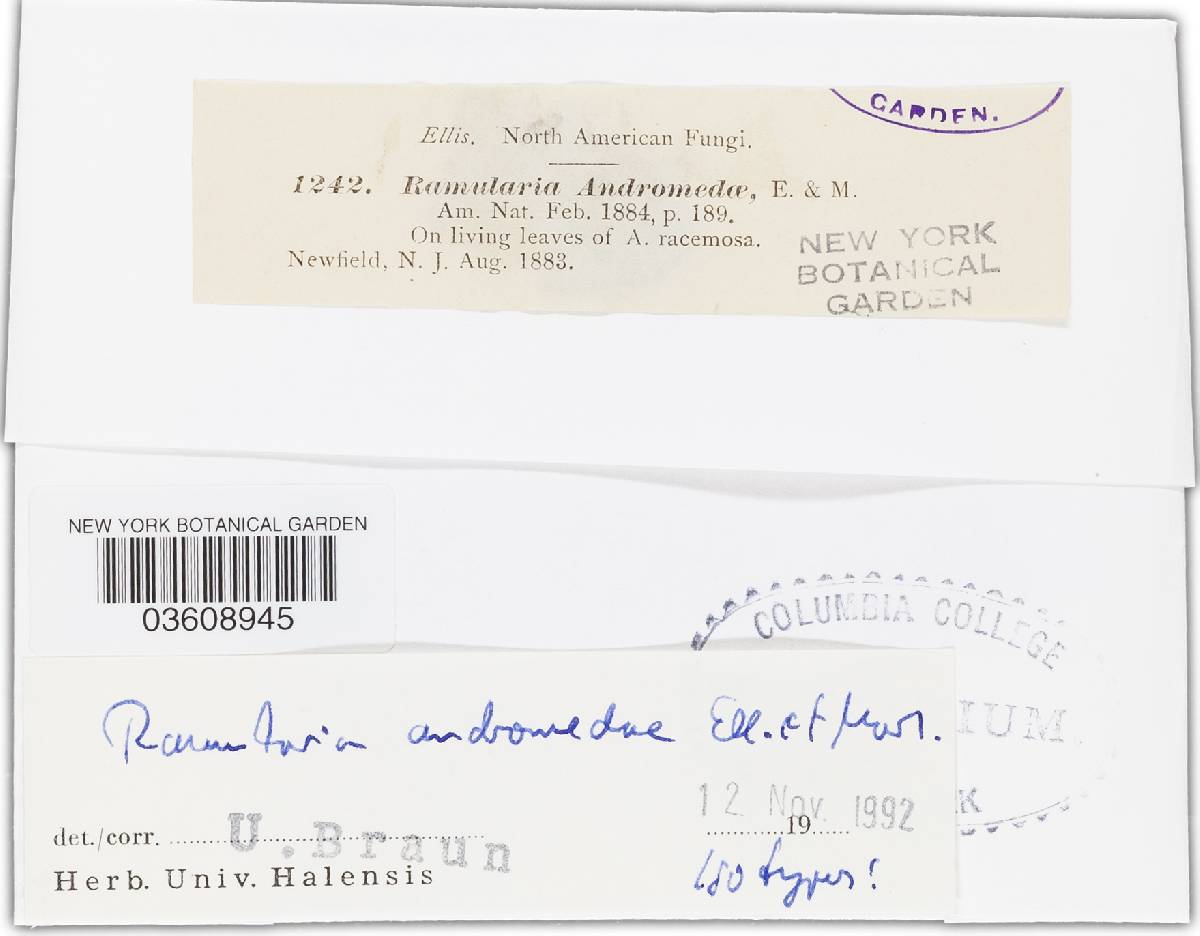 GARDEN.
Ellis. North American Fungi.
1242. Ramularia Andromedæ, E. & M.
Am. Nat. Feb. 1884, p. 189.
On living leaves of A. racemosa.
Newfield, N. J. Aug. 1883.
NEW YORK
BOTANICAL
GARDEN
NEW YORK BOTANICAL GARDEN
03608945
COLUMBIA COLLEGE
IUM.
K
Ramularia andromedae Ell. et Mart.
12 Nov. 1992
det./corr. U. Braun 19
Herb. Univ. Halensis
Isotypus!